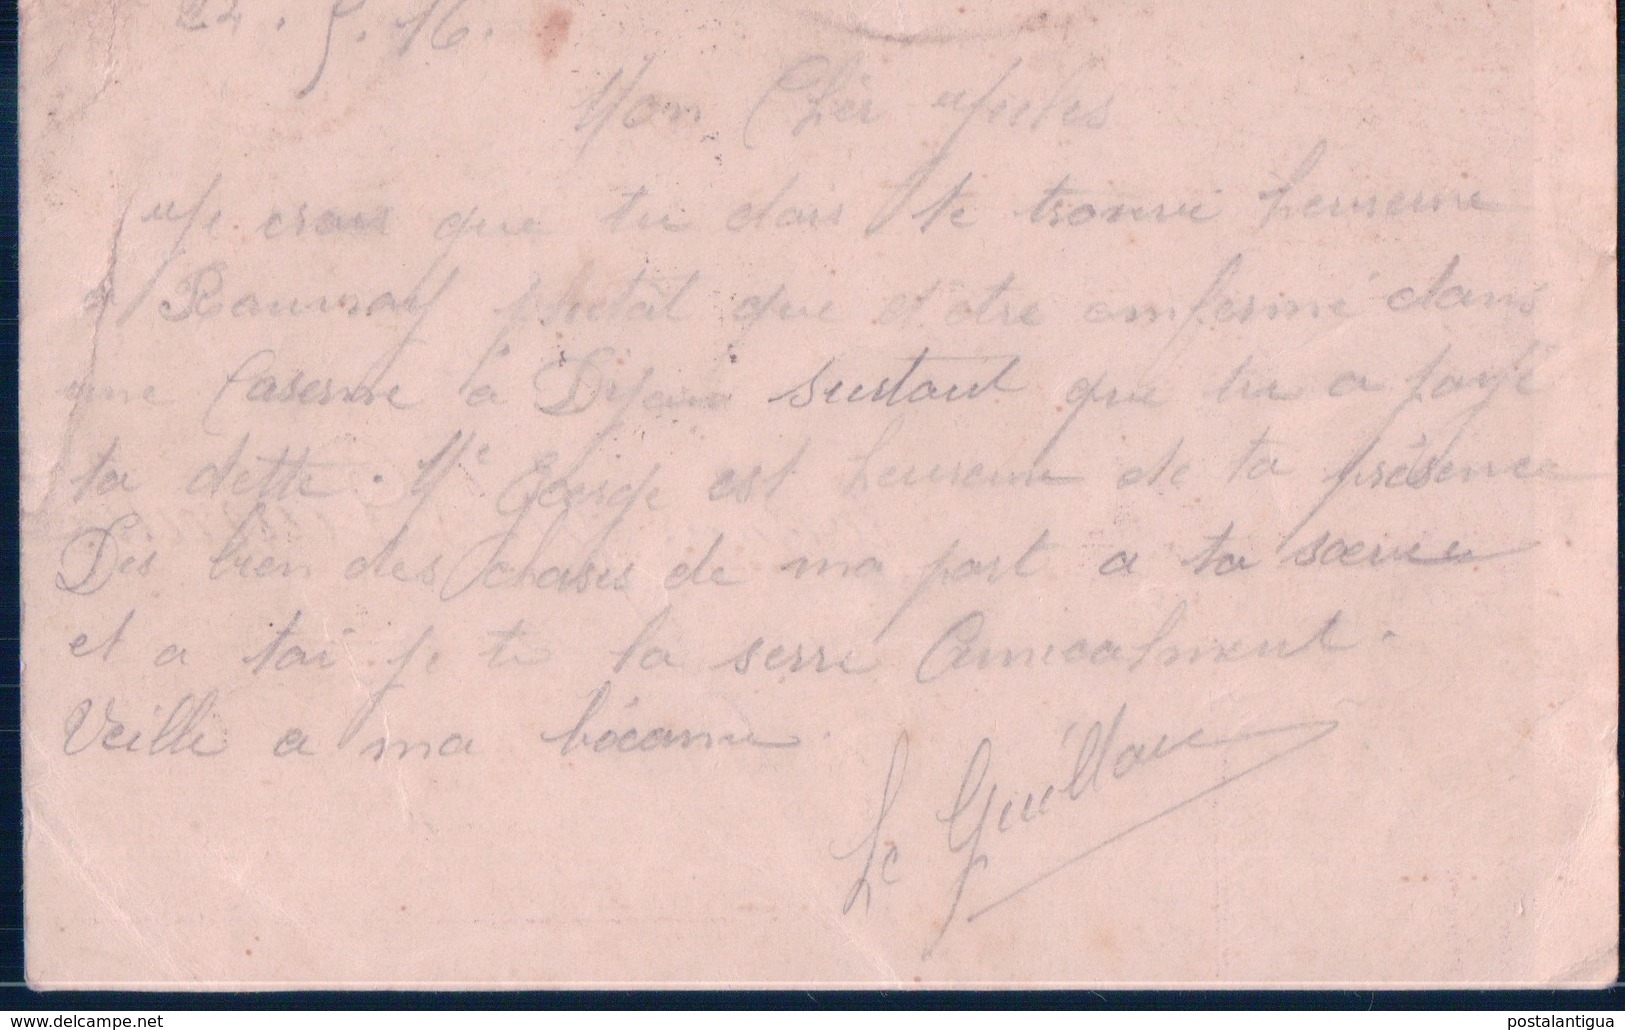 22.5.16.
Mon Cher Jules
Je crois que tu dois te trouvé heureuse
a Rouvray plutôt que d'être emfermé dans
une Caserne à Dijon surtout que tu a payé
ta dette. Me George est heureuse de ta présence
Dis bien des choses de ma part a ta soeur
et a toi je te la serre Amicalment.
Veille a ma bécanne
Le Guillou
postalantigua
www.delcampe.net